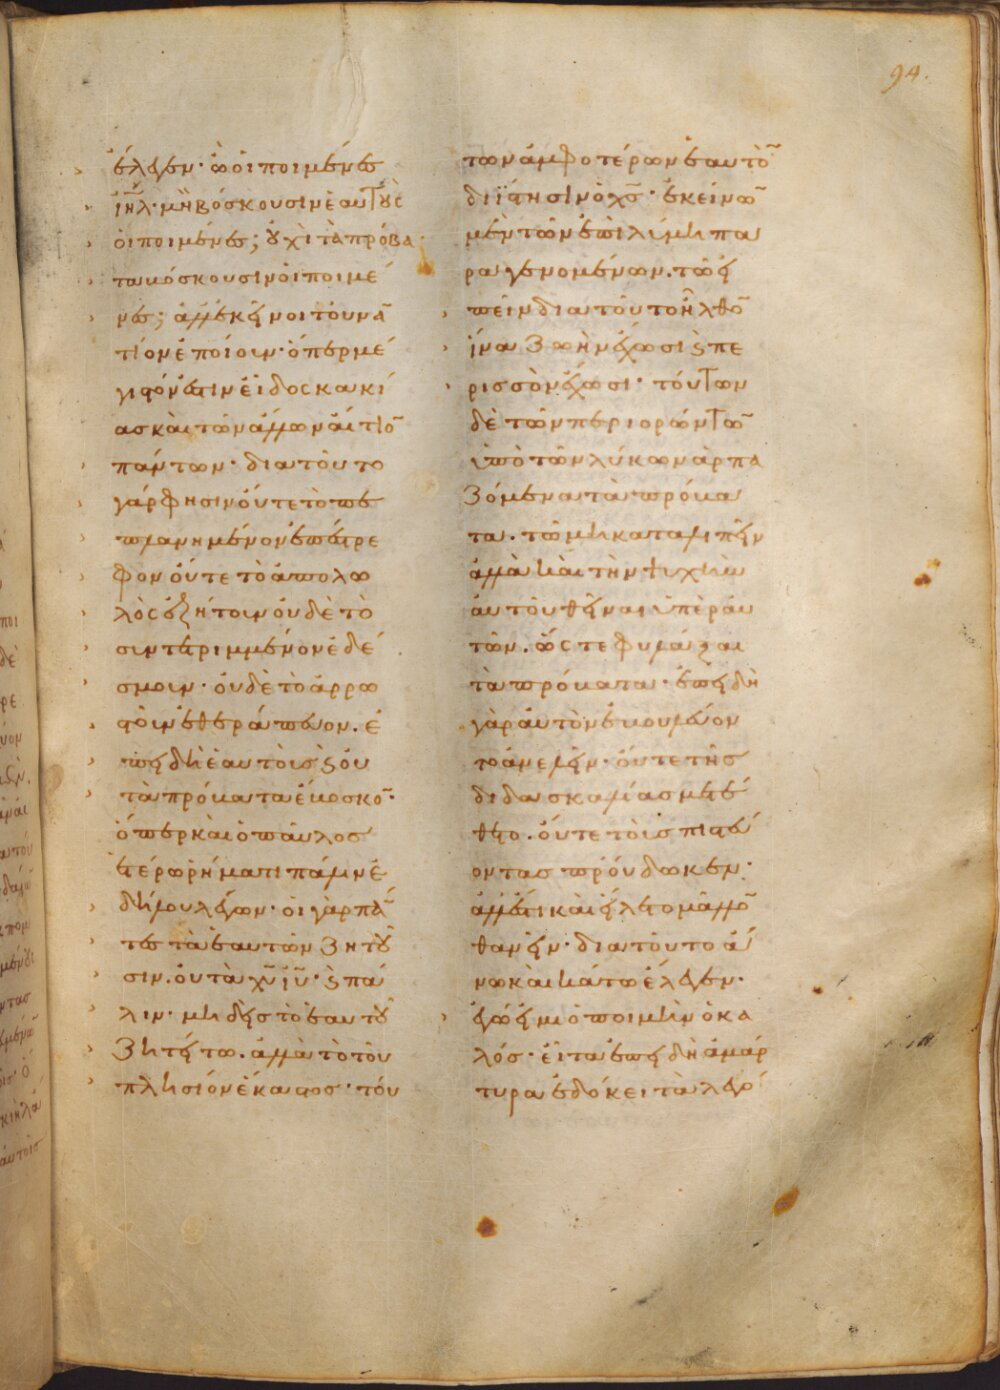 94.
ἔλεγεν· ὦ οἱ ποιμένες
ἰη̅λ· μὴ βόσκουσιν ἑαυτοὺς
οἱ ποιμένες; οὐχὶ τὰ πρόβα
τα βόσκουσιν οἱ ποιμέ
νες; ἀλλ' ἐκεῖνοι τοὐνα̅
τίον ἐποίουν· ὅπερ μέ
γιστόν ἐστιν εἶδος κακί
ας καὶ τῶν ἄλλων αἴτιο̅
πάντων· διὰ τοῦτο
γάρ φησιν οὔτε τὸ πε
πλανημένον ἐπέστρε
φον οὔτε τὸ ἀπολω
λὸς ἐζήτουν οὐδὲ τὸ
συντετριμμένον ἐδέ
σμουν· οὐδὲ τὸ ἄρρω
στοῦν ἐθεράπευον. ἐ
πειδὴ ἑαυτοὺς ϗ οὐ
τὰ πρόβατα ἐβοσκο̅·
ὅπερ καὶ ὁ παῦλος
ἑτέρῳ ῥήματι πάλιν ἐ
δήλου λέγων· οἱ γὰρ πα̅
τες τὰ ἑαυτῶν ζητοῦ
σιν. οὐ τὰ χ̅υ̅ ἰ̅υ̅· ϗ πά
λιν· μηδεὶς τὸ ἑαυτοῦ
ζητείτω. ἀλλὰ τὸ τοῦ
πλησίον ἕκαστος· τού
των ἀμφοτέρων ἑαυτὸ̅
διΐστησιν ὁ χ̅ς̅· ἐκείνω̅
μὲν τῶν ἐπὶ λύμῃ πα
ραγενομένων. τῷ εἰ
πεῖν διὰ τοῦτο ἦλθο̅
ἵνα ζωὴν ἔχωσι ϗ πε
ρισσὸν ἔχωσι· τούτων
δὲ τῶν περιορώντω̅
ὑπὸ τῶν λύκων ἁρπα
ζόμενα τὰ πρόβα
τα. τῷ μὴ καταλιπεῖν
ἀλλὰ καὶ τὴν ψυχὴν
αὐτοῦ θεῖναι ὑπὲρ αὐ
τῶν. ὥστε φυλάξαι
τὰ πρόβατα· ἐπειδὴ
γὰρ αὐτὸν ἐβουλεύον
το ἀνελεῖν· οὔτε τῆς
διδασκαλίας μετέ
θετο. οὔτε τοὺς πιστεύ
οντας προὔδωκεν·
ἀλλ' ἔστι καὶ εἵλετο μᾶλλο̅
θανεῖν· διὰ τοῦτο ἄ
νω καὶ κάτω ἔλεγεν·
ἐγώ εἰμι ὁ ποιμὴν ὁ κα
λός· εἶτα ἐπειδὴ ἀμάρ
τυρα ἐδόκει τὰ λεγό